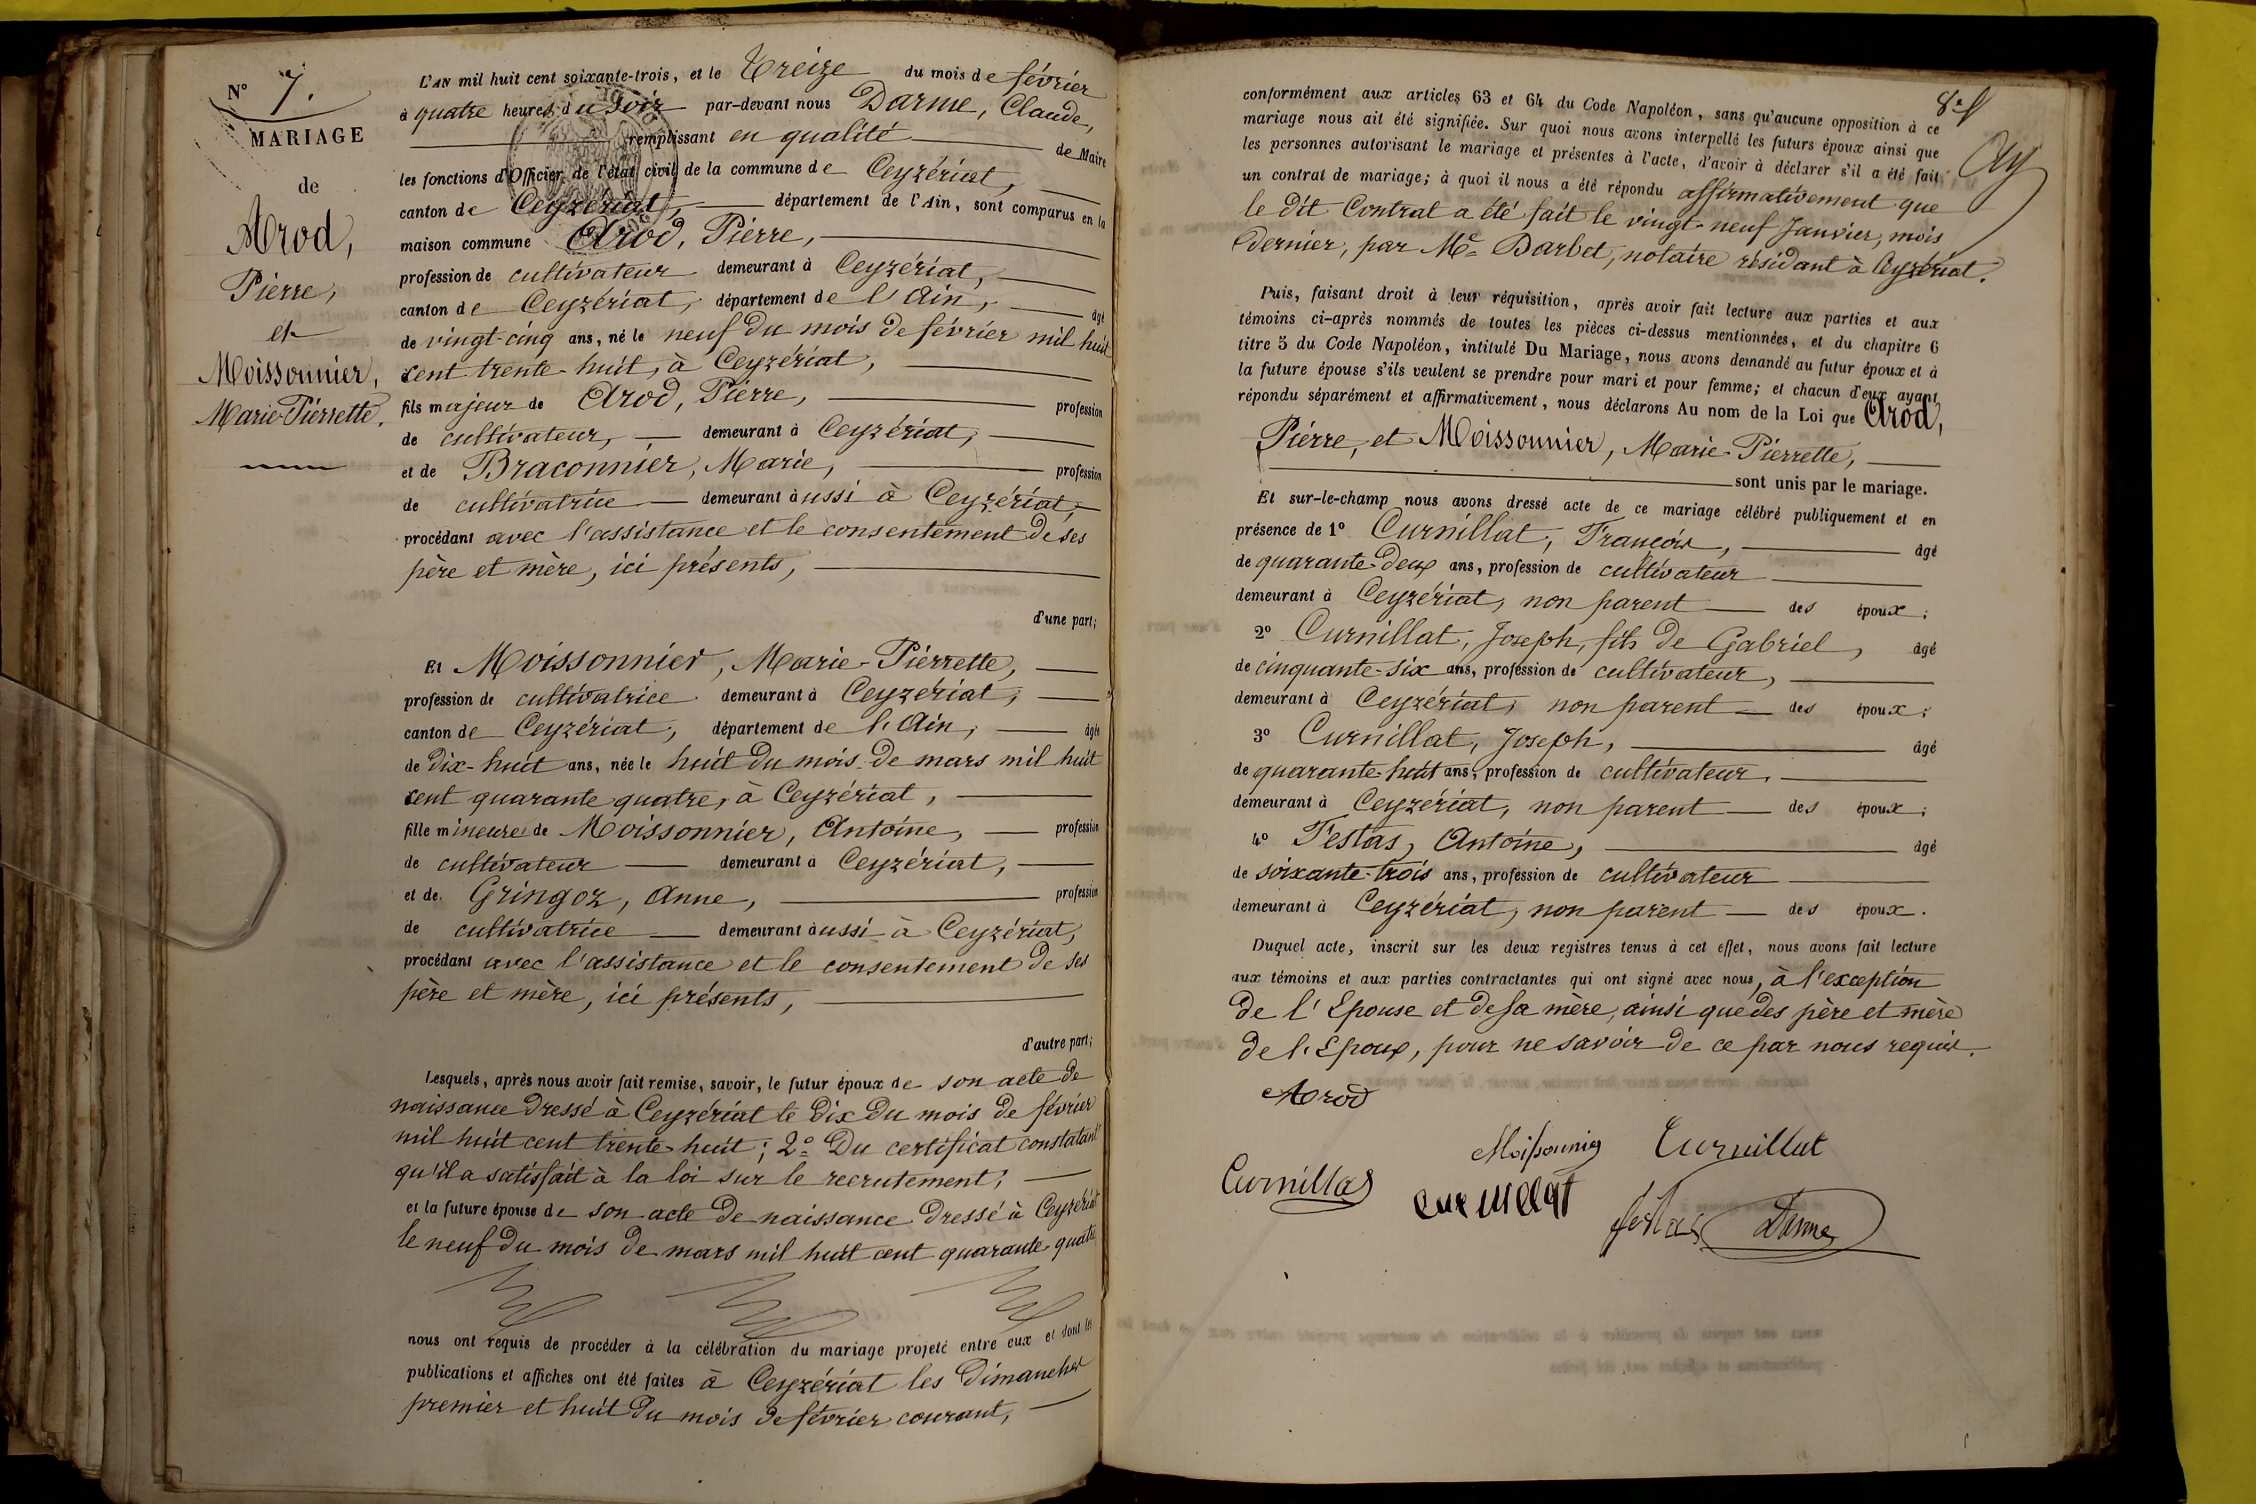 N° 7.
MARIAGE
de
Arod,
Pierre,
et
Moissonnier,
Marie-Pierrette.
L'AN mil huit cent soixante-trois, et le Treize du mois de février
à quatre heures du soir par-devant nous Darme, Claude,
remplissant en qualité de Maire
les fonctions d'Officier de l'état civil de la commune de Ceyzériat,
canton de Ceyzériat, département de l'Ain, sont comparus en la
maison commune Arod, Pierre,
profession de cultivateur demeurant à Ceyzériat,
canton de Ceyzériat, département de l'Ain, âgé
de vingt-cinq ans, né le neuf du mois de février mil huit
cent trente-huit, à Ceyzériat,
fils majeur de Arod, Pierre, profession
de cultivateur, demeurant à Ceyzériat,
et de Braconnier, Marie, profession
de cultivatrice demeurant aussi à Ceyzériat,
procédant avec l'assistance et le consentement de ses
père et mère, ici présents,
d'une part;
Et Moissonnier, Marie-Pierrette,
profession de cultivatrice demeurant à Ceyzériat,
canton de Ceyzériat, département de l'Ain, âgée
de dix-huit ans, née le huit du mois de mars mil huit
cent quarante quatre, à Ceyzériat,
fille mineure de Moissonnier, Antoine, profession
de cultivateur demeurant à Ceyzériat,
et de Gringoz, Anne, profession
de cultivatrice demeurant aussi à Ceyzériat,
procédant avec l'assistance et le consentement de ses
père et mère, ici présents,
d'autre part;
Lesquels, après nous avoir fait remise, savoir, le futur époux de son acte de
naissance dressé à Ceyzériat le dix du mois de février
mil huit cent trente-huit; 2° Du certificat constatant
qu'il a satisfait à la loi sur le recrutement;
et la future épouse de son acte de naissance dressé à Ceyzériat
le neuf du mois de mars mil huit cent quarante-quatre
nous ont requis de procéder à la célébration du mariage projeté entre eux et dont les
publications et affiches ont été faites à Ceyzériat les Dimanches
premier et huit du mois de février courant,
8e f
conformément aux articles 63 et 64 du Code Napoléon, sans qu'aucune opposition à ce
mariage nous ait été signifiée. Sur quoi nous avons interpellé les futurs époux ainsi que
les personnes autorisant le mariage et présentes à l'acte, d'avoir à déclarer s'il a été fait
un contrat de mariage; à quoi il nous a été répondu affirmativement que
le dit Contrat a été fait le vingt-neuf Janvier, mois
dernier, par Me Barbet, notaire résidant à Ceyzériat.
Puis, faisant droit à leur réquisition, après avoir fait lecture aux parties et aux
témoins ci-après nommés de toutes les pièces ci-dessus mentionnées, et du chapitre 6
titre 5 du Code Napoléon, intitulé Du Mariage, nous avons demandé au futur époux et à
la future épouse s'ils veulent se prendre pour mari et pour femme; et chacun d'eux ayant
répondu séparément et affirmativement, nous déclarons Au nom de la Loi que Arod,
Pierre, et Moissonnier, Marie-Pierrette,
sont unis par le mariage.
Et sur-le-champ nous avons dressé acte de ce mariage célébré publiquement et en
présence de 1° Curnillat, François, âgé
de quarante-deux ans, profession de cultivateur
demeurant à Ceyzériat, non parent des époux;
2° Curnillat, Joseph, fils de Gabriel, âgé
de cinquante-six ans, profession de cultivateur,
demeurant à Ceyzériat, non parent des époux;
3° Curnillat, Joseph, âgé
de quarante-huit ans, profession de cultivateur,
demeurant à Ceyzériat, non parent des époux;
4° Festas, Antoine, âgé
de soixante-trois ans, profession de cultivateur
demeurant à Ceyzériat, non parent des époux.
Duquel acte, inscrit sur les deux registres tenus à cet effet, nous avons fait lecture
aux témoins et aux parties contractantes qui ont signé avec nous, à l'exception
de l'Epouse et de sa mère, ainsi que des père et mère
de l'Epoux, pour ne savoir de ce par nous requis.
Arod
Moissonnier Curnillat
Curnillat Curnillat
festas Darme